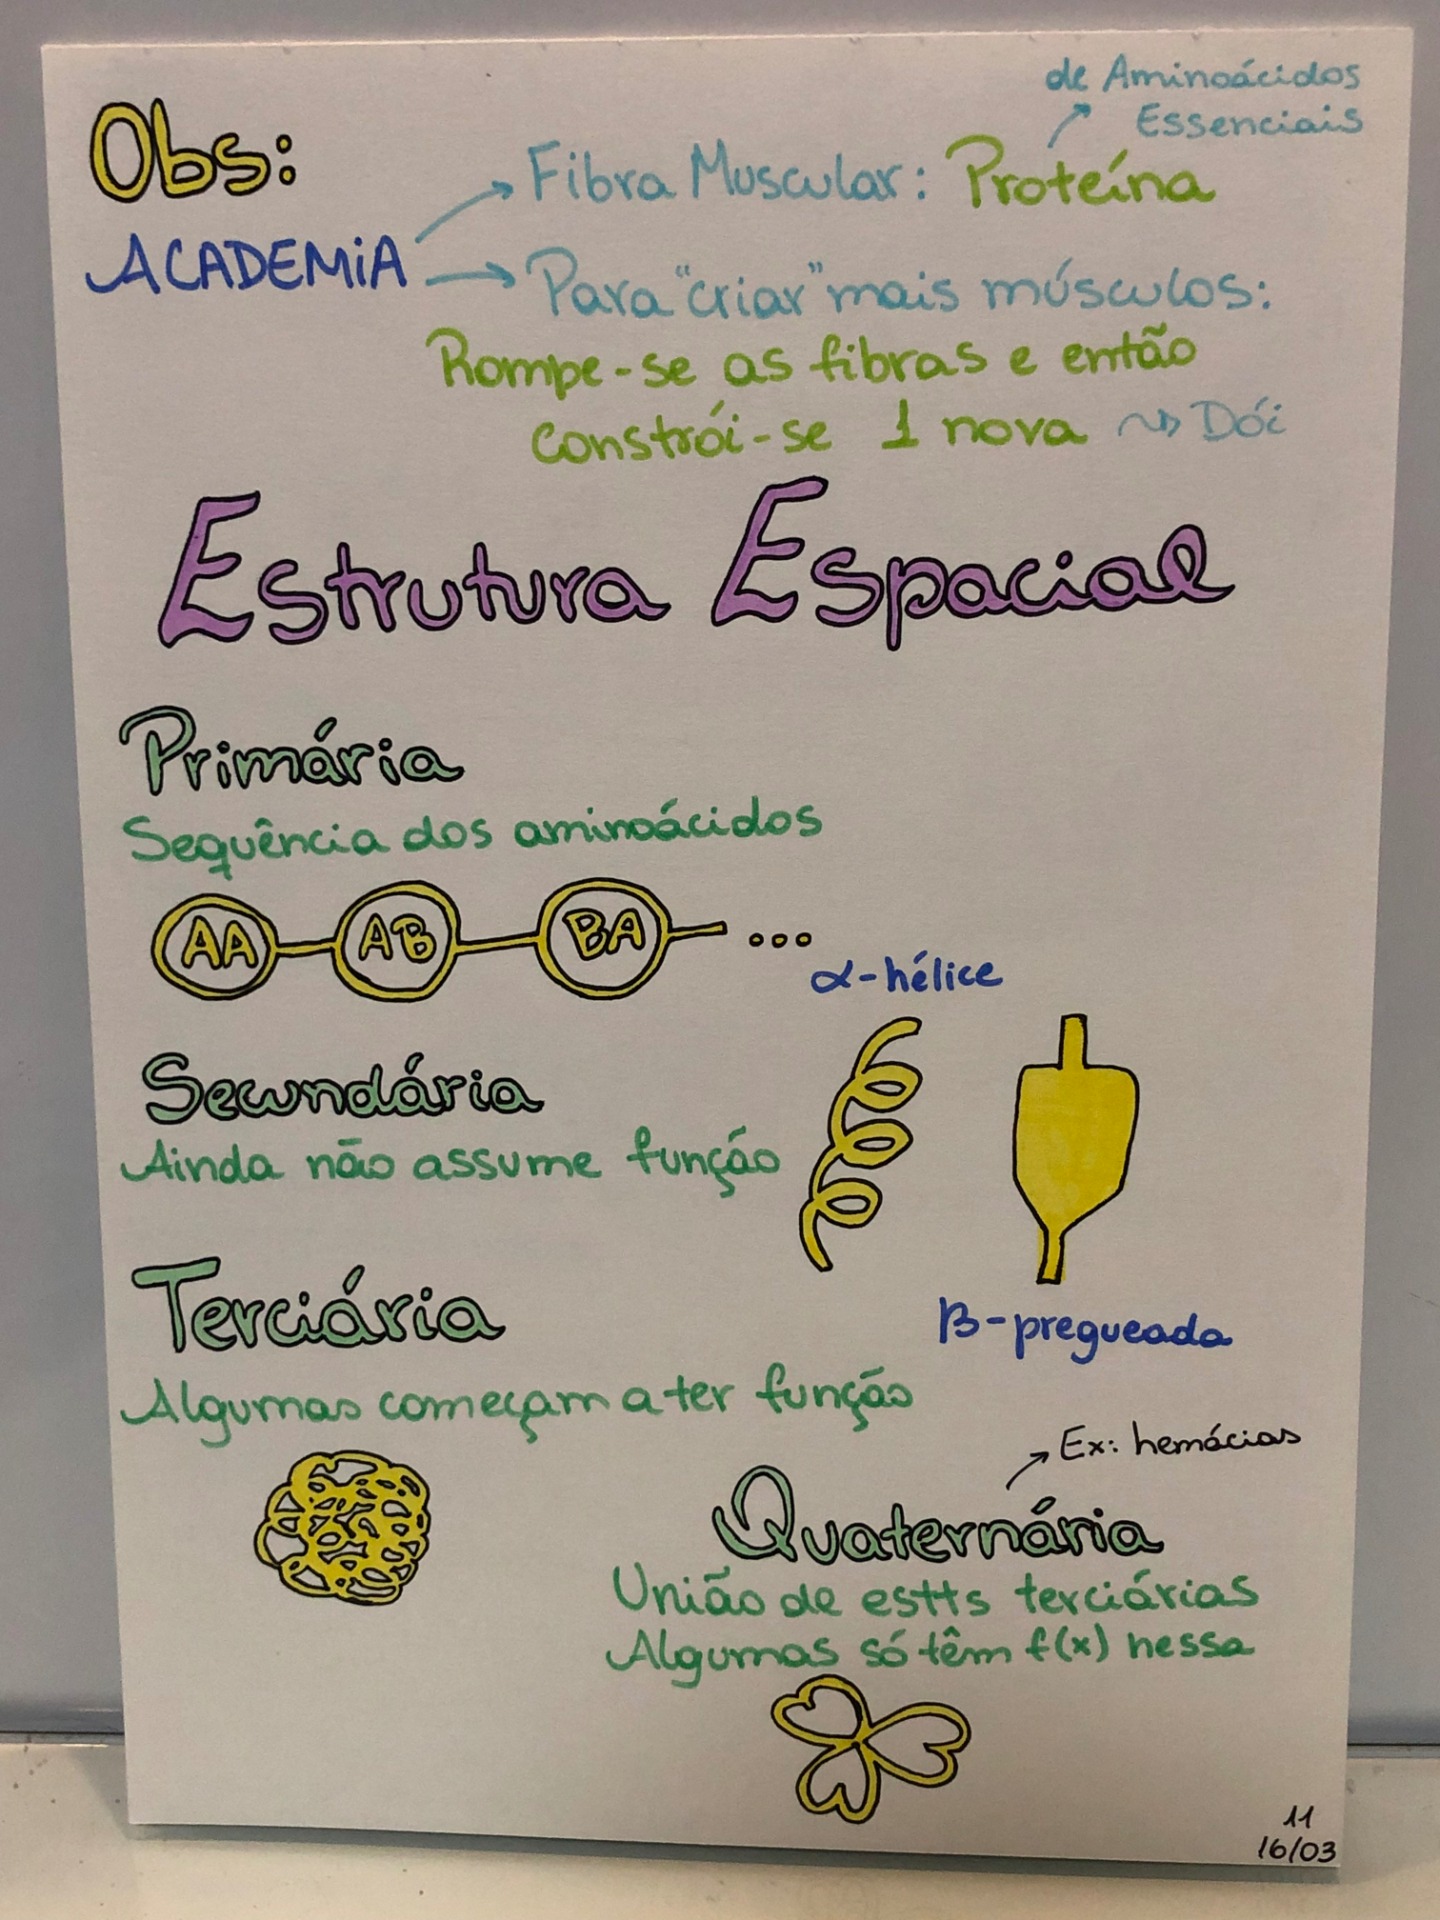 Obs:
de Aminoácidos
Essenciais
Fibra Muscular: Proteína
ACADEMiA
Para "criar" mais músculos:
Rompe-se as fibras e então
constrói-se 1 nova ~> Dói
Estrutura Espacial
Primária
Sequência dos aminoácidos
AA AB BA ...
α-hélice
Secundária
Ainda não assume função
β-pregueada
Terciária
Algumas começam a ter função
Ex: hemácias
Quaternária
União de estts terciárias
Algumas só têm f(x) nessa
11
16/03